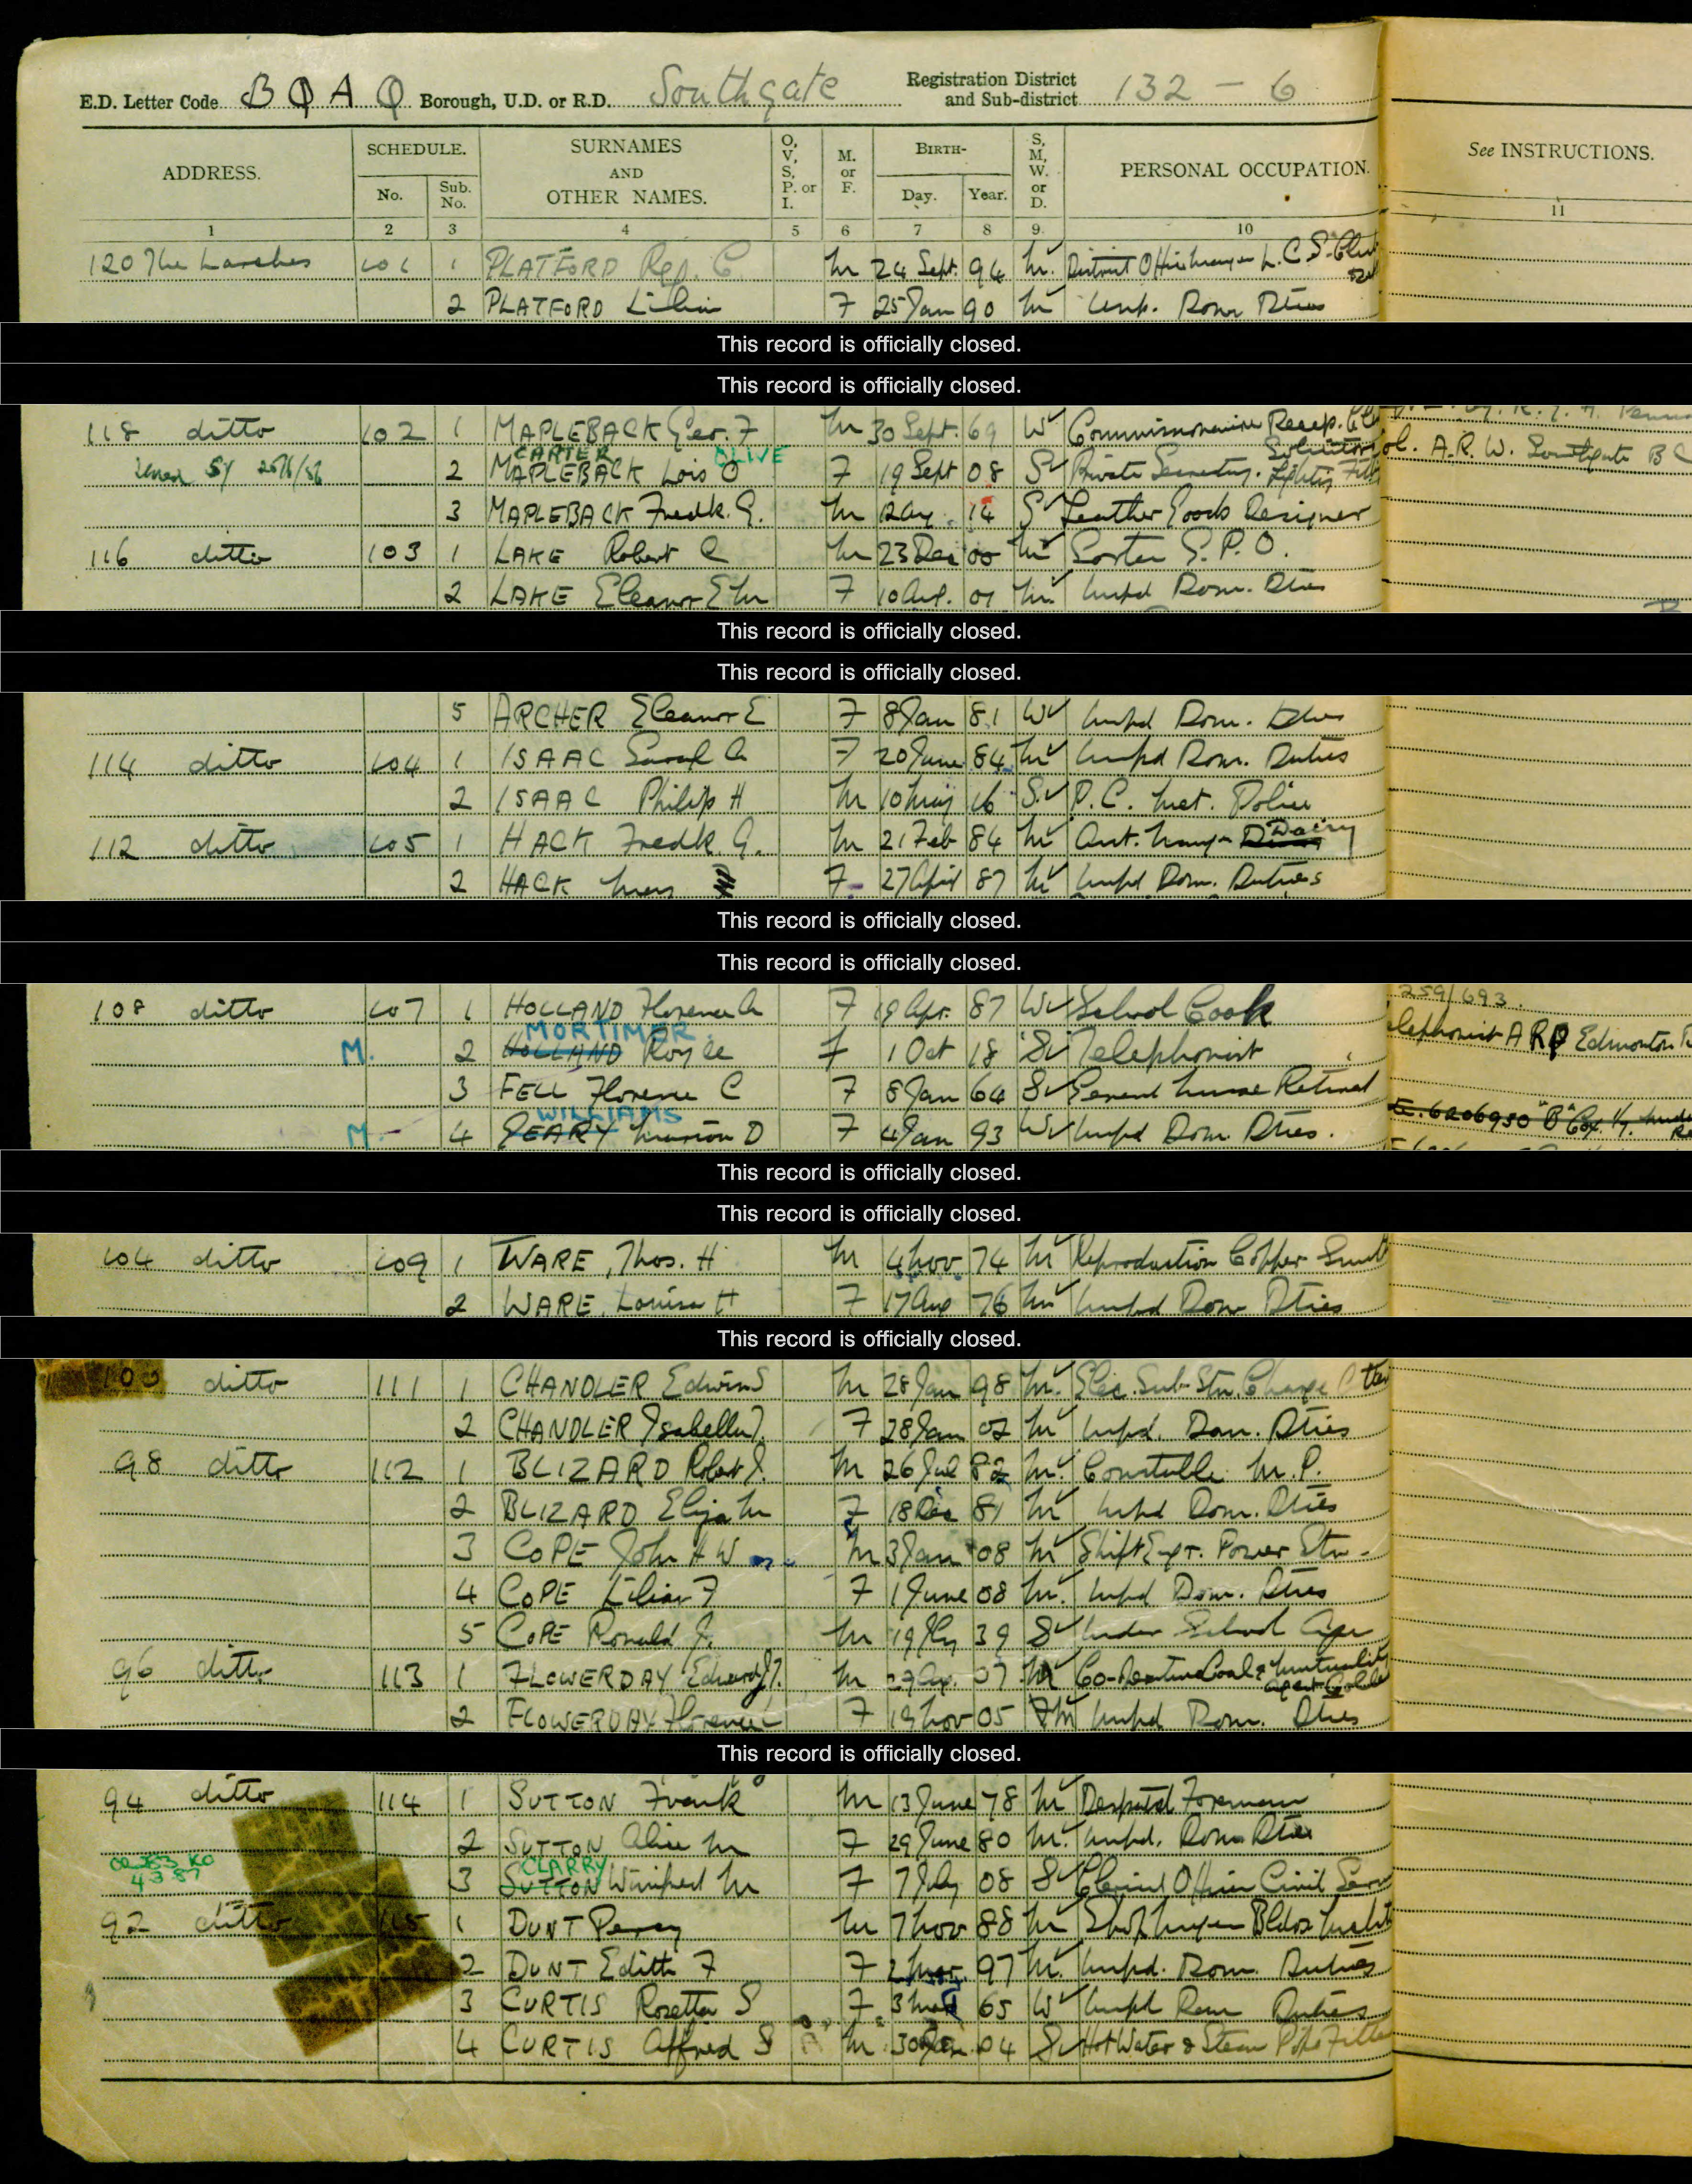 E.D. Letter Code B Q A Q Borough, U.D. or R.D. Southgate Registration District and Sub-district 132 - 6
ADDRESS. SCHEDULE. No. Sub. No. SURNAMES AND OTHER NAMES. O, V, S, P. or I. M. or F. BIRTH- Day. Year. S, M, W. or D. PERSONAL OCCUPATION. See INSTRUCTIONS.
1 2 3 4 5 6 7 8 9 10 11
120 The Larches 101 1 PLATFORD Reg. C M 24 Sept. 94 M. District Office L.C.S.
2 PLATFORD Lilian F 25 Jan 90 M Unp. Dom Dties
This record is officially closed.
This record is officially closed.
118 ditto 102 1 MAPLEBACK Geo. F M 30 Sept. 69 W Commissionaire Recep.
CARTER OLIVE Solicitor
2 MAPLEBACK Lois O F 19 Sept 08 S Private Secretary. Lighting A.R.W. Southgate B C
3 MAPLEBACK Fredk. G. M 14 S Leather Goods Designer
116 ditto 103 1 LAKE Robert C M 23 Dec 00 M Sorter G.P.O.
2 LAKE Eleanor E M F 10 01 M Unpd Dom. Dties
This record is officially closed.
This record is officially closed.
5 ARCHER Eleanor E F 8 Jan 81 W Unpd Dom. Dties
114 ditto 104 1 ISAAC Sarah A F 20 June 84 M Unpd Dom. Duties
2 ISAAC Philip H M 10 May 16 S. P.C. Met. Police
112 ditto 105 1 HACK Fredk. G. M 21 Feb 84 M Dairy
2 HACK Mary F 27 April 87 M Unpd Dom. Duties
This record is officially closed.
This record is officially closed.
108 ditto 107 1 HOLLAND Florence A F 19 Apr. 87 W School Cook 259/693.
MORTIMER
M. 2 HOLLAND Royce F 1 Oct 18 S Telephonist elephonist ARP Edmonton
3 FELL Florence C F 8 Jan 64 S General Nurse Retired
WILLIAMS
M 4 GEARY Marion D F 4 Jan 93 W Unpd Dom Dties. E. 6206950 "B" Coy. 1/7.
This record is officially closed.
This record is officially closed.
104 ditto 109 1 WARE, Thos. H M 4 Nov 74 M Reproduction Copper Smith
2 WARE, Louisa H F 17 Aug 76 M Unpd Dom Dties
This record is officially closed.
100 ditto 111 1 CHANDLER Edwin S M 28 Jan 98 M. Elec. Sub-Stn. Charge
2 CHANDLER Isabella J. F 28 Jan 02 M Unpd. Dom. Dties
98 ditto 112 1 BLIZARD Robert J. M 26 Jul 82 M. Constable M.P.
2 BLIZARD Eliza M F 18 Dec 81 M Unpd Dom. Dties
3 COPE John H W M 3 Jan 08 M Shift Engr. Power Stn.
4 COPE Lilian F F 1 June 08 M. Unpd Dom. Dties
5 COPE Ronald J. M 19 39 S Under School Age
96 ditto 113 1 FLOWERDAY Edward J. M 07 M Co-operative Coal & Mutuality
2 FLOWERDAY Florence F 19 Nov 05 M Unpd Dom. Dties
This record is officially closed.
94 ditto 114 1 SUTTON Frank M 13 June 78 M Despatch Foreman
2 SUTTON Alice M F 29 June 80 M. Unpd. Dom Dties
CLARRY
3 SUTTON Winifred M F 7 July 08 S Clerical Officer Civil Serv
92 ditto 115 1 DUNT Percy M 7 Nov 88 M Shop
2 DUNT Edith F F 2 Mar. 97 M. Unpd. Dom. Duties
3 CURTIS Rosetta S F 3 65 W Unpd Dom Duties
4 CURTIS Alfred S M 30 04 S Hot Water & Steam Pipe Fitter